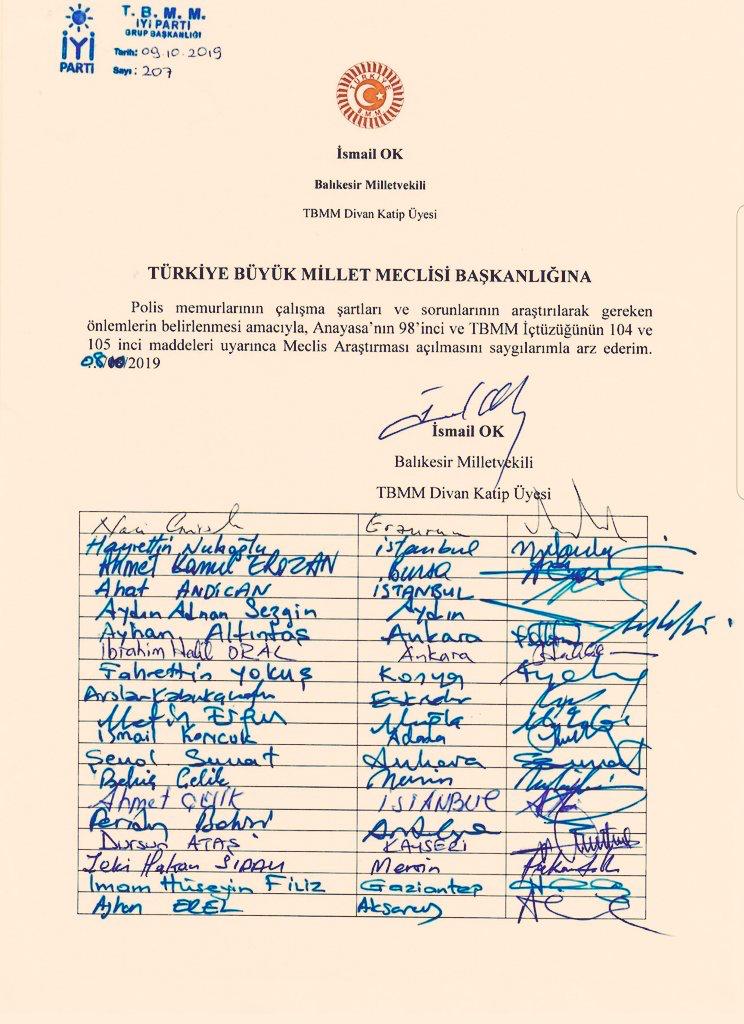 T. B. M. M.
İYİ PARTİ
GRUP BAŞKANLIĞI
Tarih: 09.10.2019
Sayı: 207
İYİ
PARTİ
TÜRKİYE
BMM
İsmail OK
Balıkesir Milletvekili
TBMM Divan Katip Üyesi
TÜRKİYE BÜYÜK MİLLET MECLİSİ BAŞKANLIĞINA
Polis memurlarının çalışma şartları ve sorunlarının araştırılarak gereken
önlemlerin belirlenmesi amacıyla, Anayasa'nın 98'inci ve TBMM İçtüzüğünün 104 ve
105 inci maddeleri uyarınca Meclis Araştırması açılmasını saygılarımla arz ederim.
08/10/2019
İsmail OK
Balıkesir Milletvekili
TBMM Divan Katip Üyesi
Naci Erzurum
Hayrettin Nuhoğlu istanbul
Ahmet Kamil EROZAN Bursa
Ahat ANDİCAN İSTANBUL
Aydın Adnan Sezgin Aydın
Ayhan Altıntaş Ankara
İbrahim Halil ORAL Ankara
Fahrettin YOKUŞ Konya
Arslan Kabukçuoğlu Eskişehir
Metin Ergun Muğla
İsmail KONCUK Adana
Şenol Sunat Ankara
Behiç Çelik Mersin
Ahmet ÇELİK İSTANBUL
Antalya
Dursun ATAŞ KAYSERİ
Zeki Hakan SIDALI Mersin
İmam Hüseyin FİLİZ Gaziantep
Ayhan EREL Aksaray